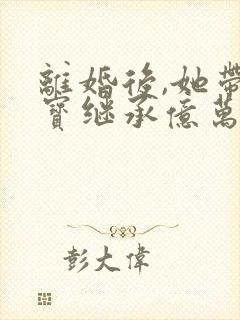 離婚後,她帶
寶继承億萬
彭大偉